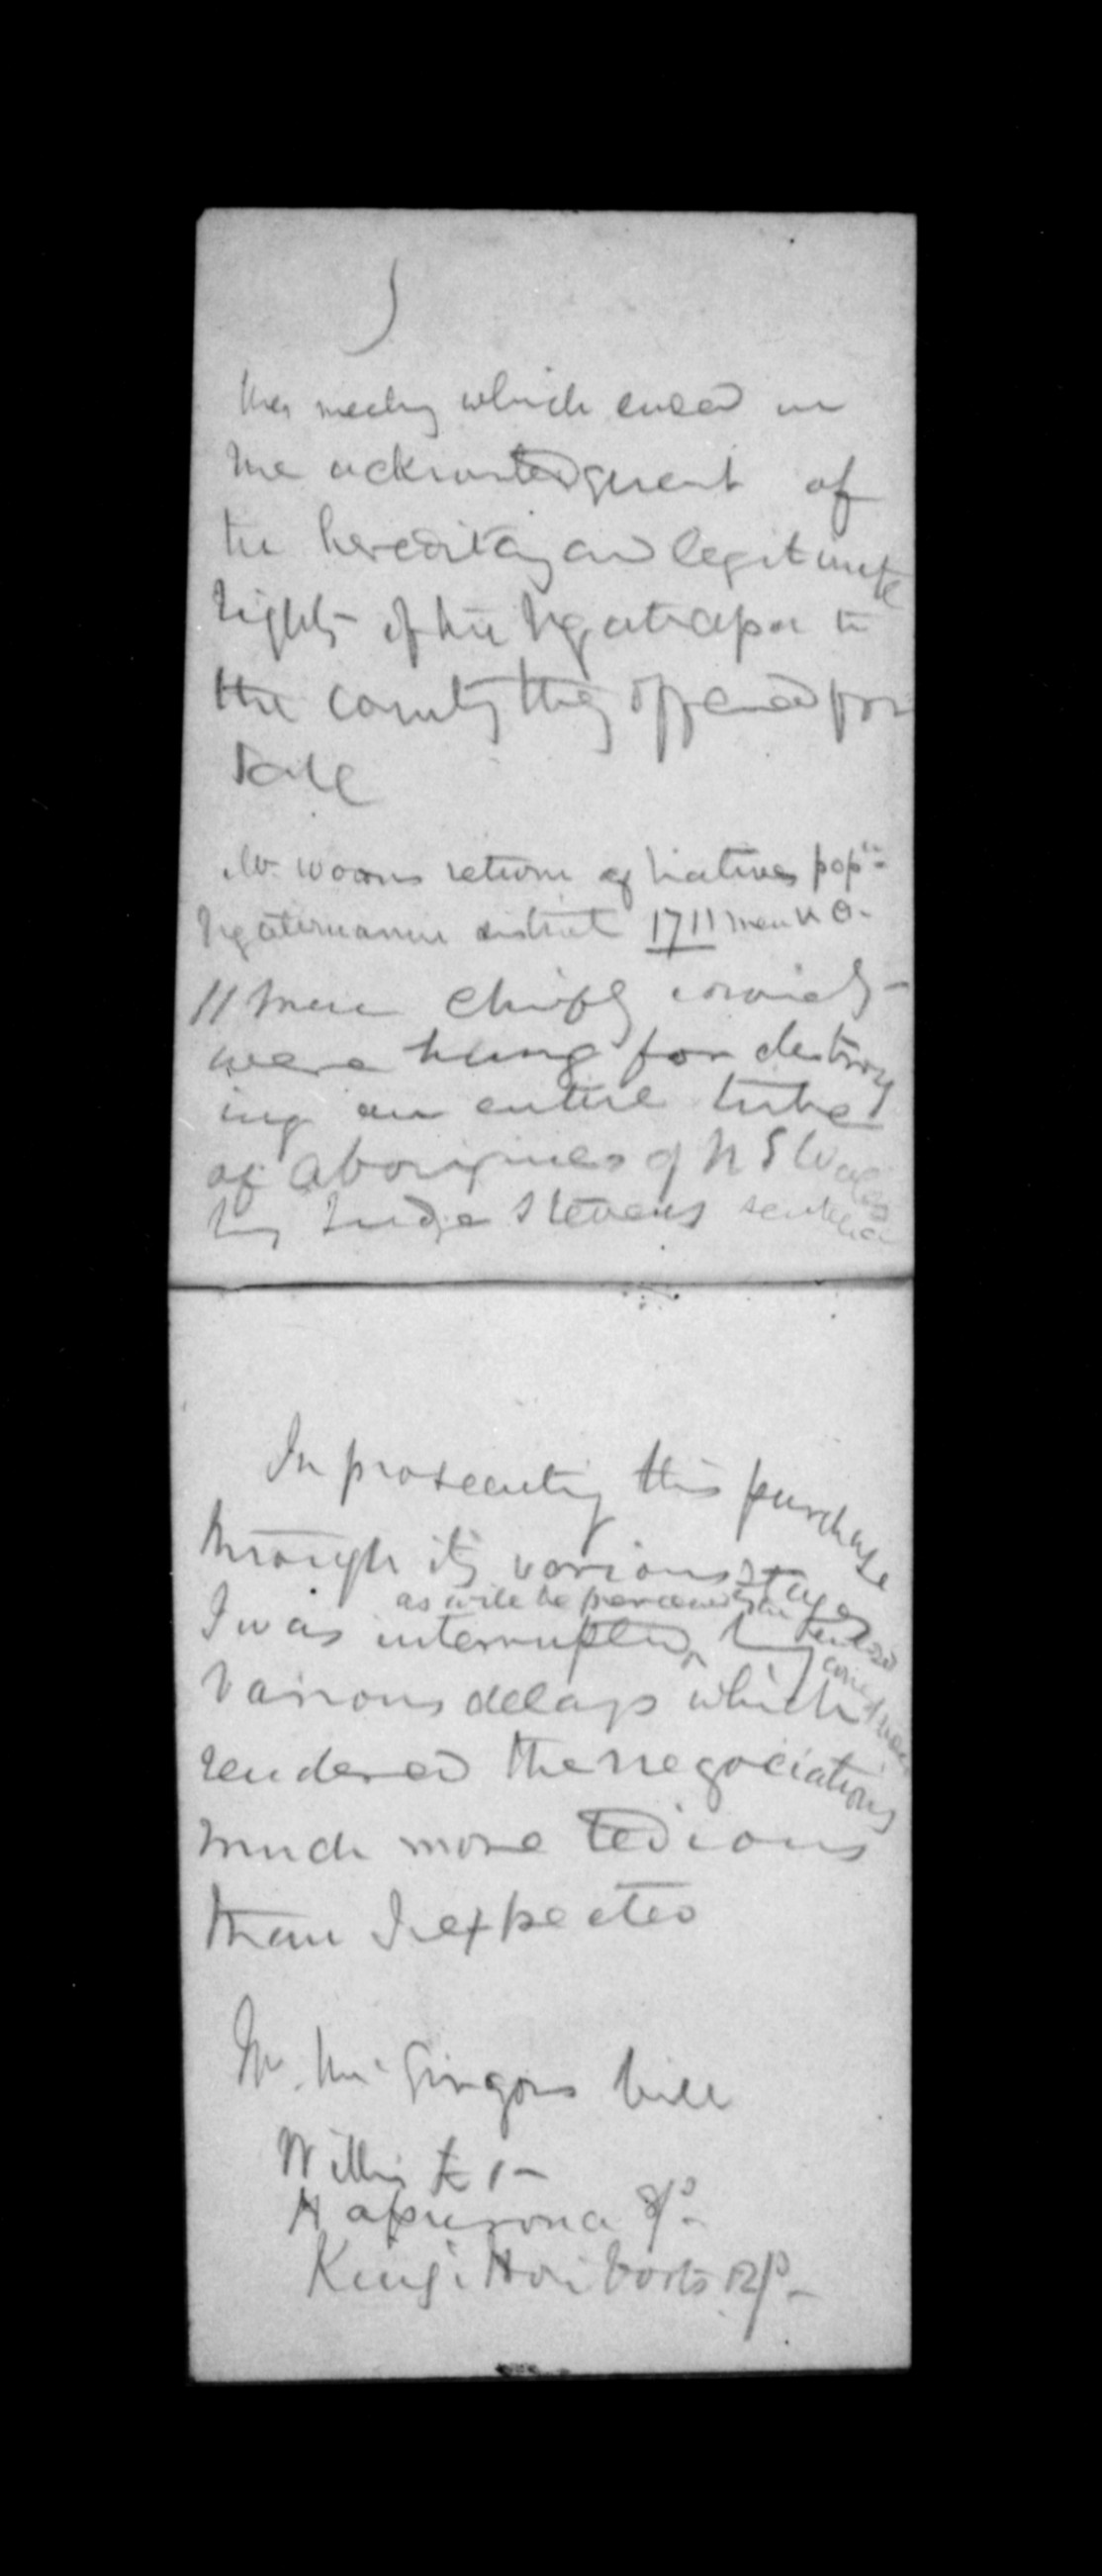 this meeting which ended in
the acknowledgment of
the hereditary and legitimate
rights of the Ngatiapa to
the country they offered for
Sale
Mr. Woons return of Natives popn
Ngateruanui district 1711 men
11 men chiefly convicts
were hung for destroy
ing an entire tribe
of Aborigines of N S Wales
by Judge Stevens sentence
In prosecuting this purchase
through its various stages
as will be perceived by the enclosed
I was interrupted by
various delays which
rendered the negociations
much more tedious
than I expected
Mr. McGregors bill
Willis £1-
Hapurona 8/-
Kingi Hori boots 12/-